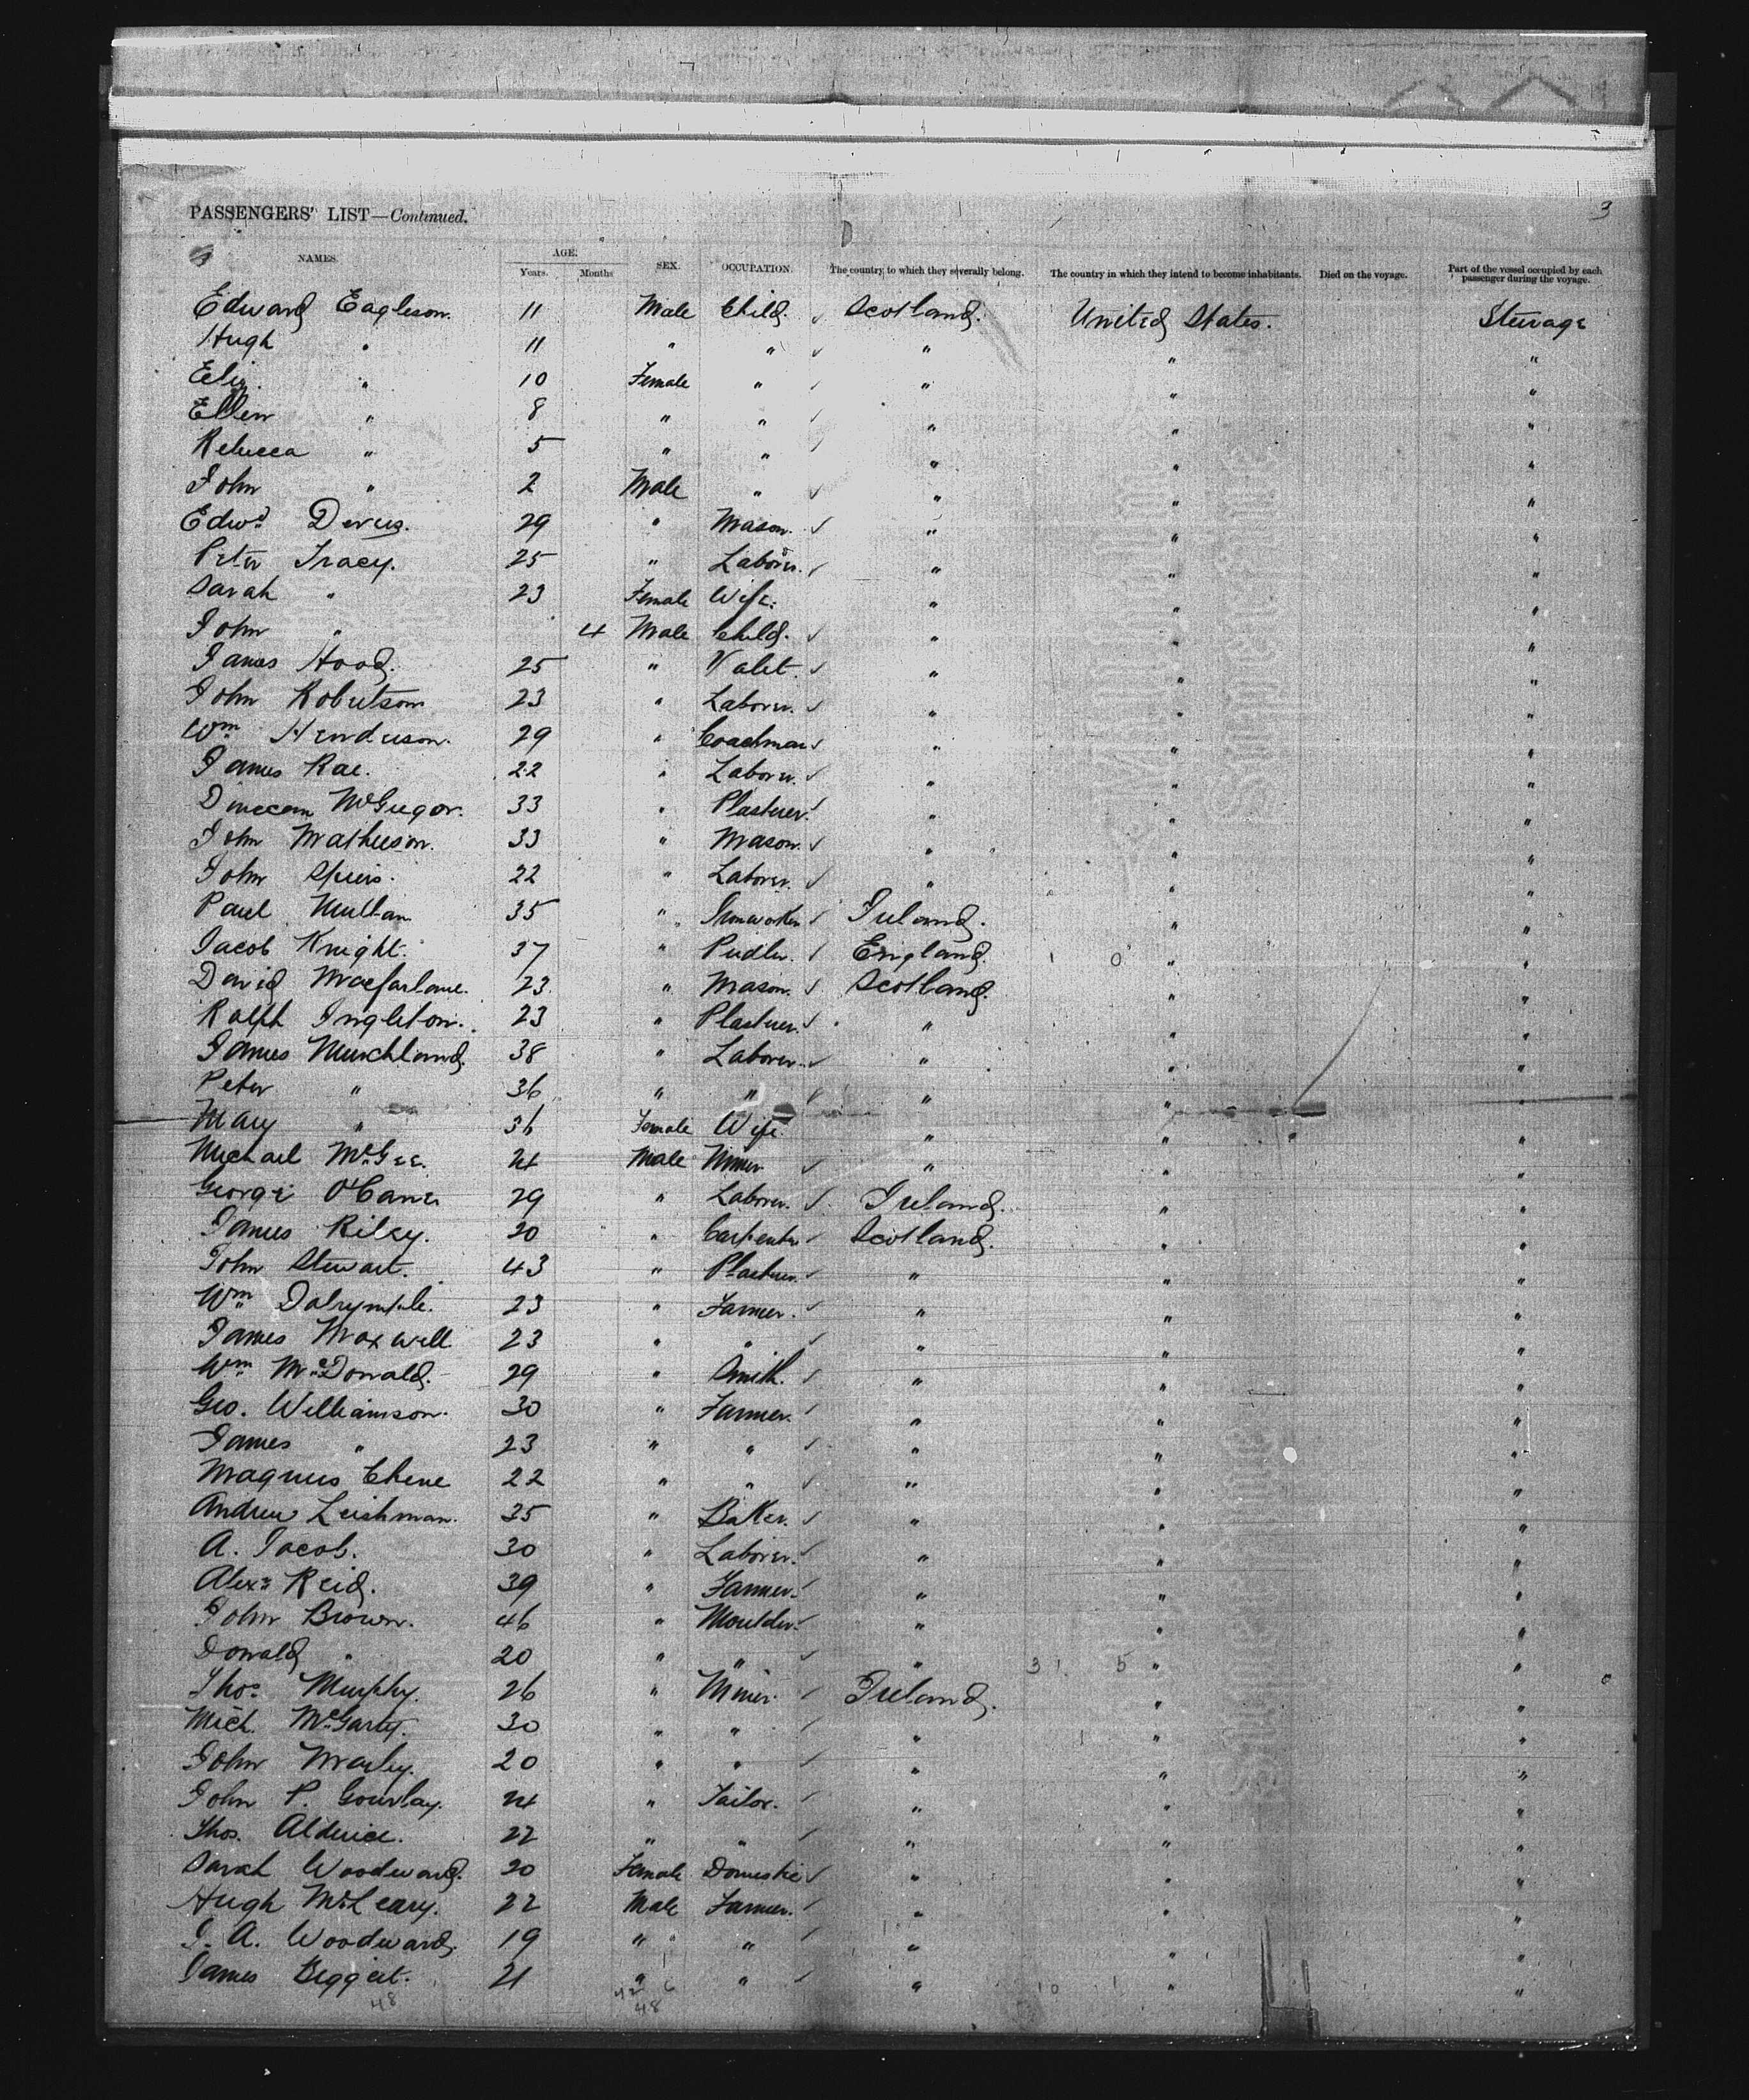 PASSENGERS' LIST—Continued. 3
NAMES. AGE. SEX. OCCUPATION. The country to which they severally belong. The country in which they intend to become inhabitants. Died on the voyage. Part of the vessel occupied by each passenger during the voyage.
Years. Months
Edward Eagleson. 11 Male Child. Scotland. United States. Steerage
Hugh " 11 " " " " "
Eliz. " 10 Female " " " "
Ellen " 8 " " " " "
Rebecca " 5 " " " " "
John " 2 Male " " " "
Edwd 29 " Mason. " " "
Peter Tracy. 25 " Laborer. " " "
Sarah " 23 Female Wife. " " "
John " 4 Male Child. " " "
James Hood. 25 " Valet. " " "
John Robertson 23 " Laborer. " " "
Wm Henderson. 29 " Coachman " " "
James Rae. 22 " Laborer. " " "
Duncan McGregor. 33 " Plasterer. " " "
John Matheson. 33 " Mason. " " "
John Speirs. 22 " Laborer. " " "
Paul Mullan 35 " Ironworker Ireland. " "
Jacob Knight. 37 " Pudler. England. 1 0 " "
David Macfarlane. 23 " Mason. Scotland. " "
Ralph Ingleton. 23 " Plasterer. " " "
James Murchland. 38 " Laborer. " " "
Peter " 36 " " " " "
Mary " 36 Female Wife. " " "
Michael McGee. 24 Male Miner " " "
George O'Cane 29 " Laborer. Ireland. " "
James Riley. 20 " Carpenter Scotland. " "
John Stewart. 43 " Plasterer. " " "
Wm Dalrymple. 23 " Farmer. " " "
James Maxwell 23 " " " " "
Wm McDonald. 29 " Smith. " " "
Geo. Williamson. 30 " Farmer. " " "
James " 23 " " " " "
Magnus Chene 22 " " " " "
Andrew Leishman. 35 " Baker. " " "
A. Jacob. 30 " Laborer. " " "
Alexr Reid. 39 " Farmer. " " "
John Brown. 46 " Moulder. " " "
Donald " 20 " " " 31. 5 " "
Thos Murphy. 26 " Miner. Ireland. " "
Mich. McGarty. 30 " " " 1 " "
John Marley. 20 " " " " "
John P. Gourlay. 24 " Tailor. " " "
Thos. Alderice. 22 " " " " "
Sarah Woodward. 20 Female Domestic " " "
Hugh McLeary. 22 Male Farmer. " " "
J. A. Woodward. 19 " " " " "
James Beggert. 21 " " " 10 1 " "
48 42 6
48